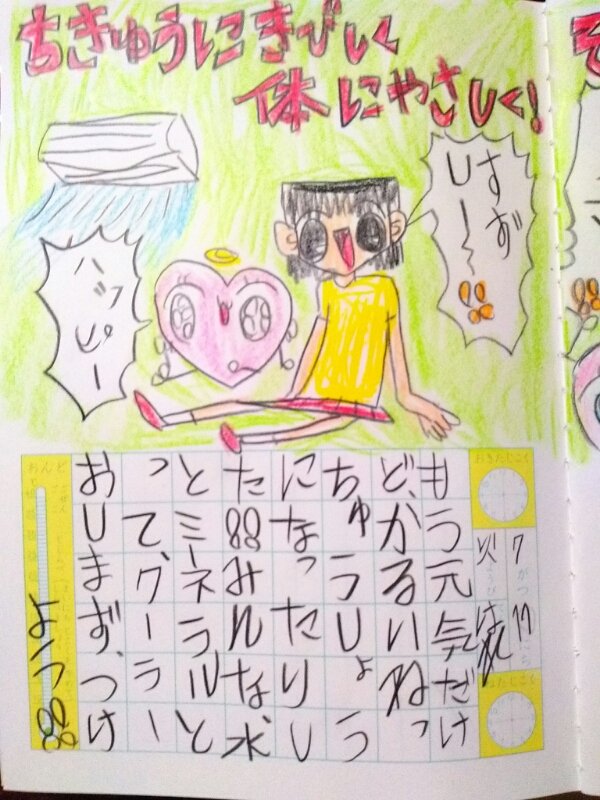 ちきゅうにきびしく
体にやさしく!
すず
しー〜
ハッピー
おきたじこく
7がつ17にち
火ようび はれ
もう元気だけ
ど、かるいねっ
ちゅうしょう
になったりし
たみんな水
とミネラルと
って、クーラー
おしまず、つけ
おんど
よう